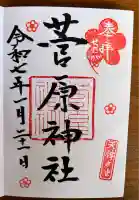 奉拝
菅原神社
令和七年一月二十一日